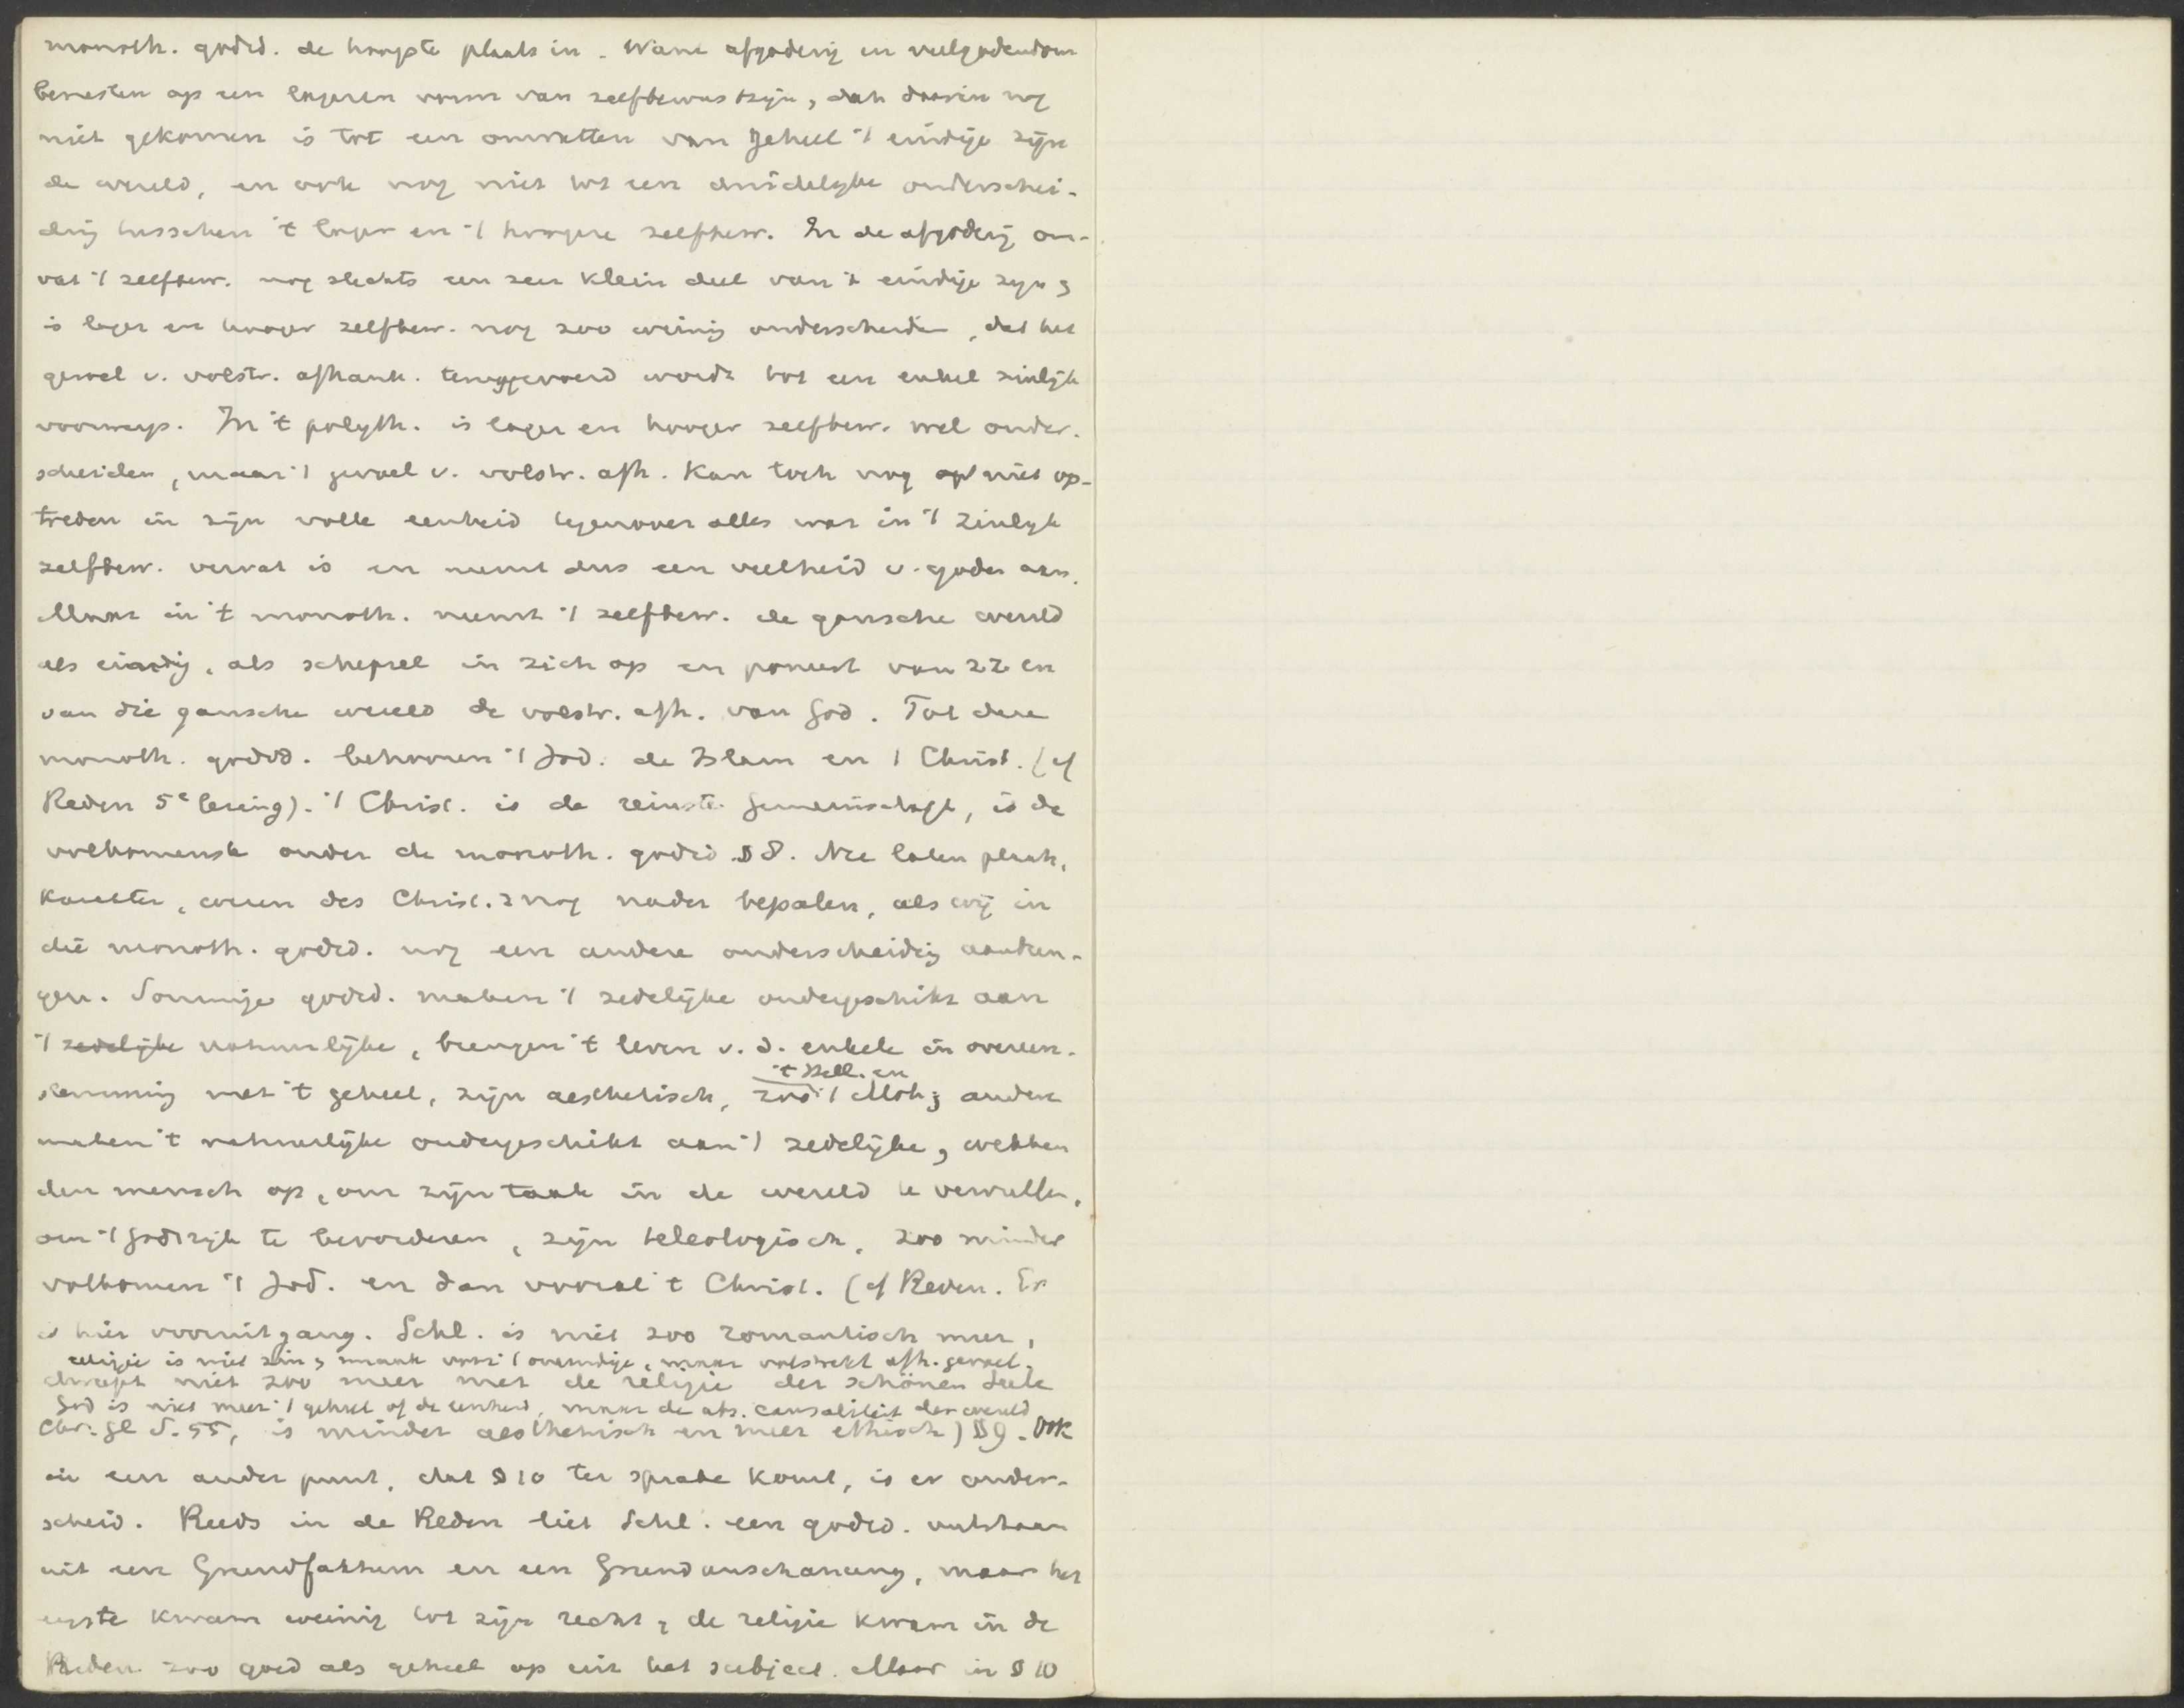 monoth. godsd. de hoogste plaats in. Want afgoderij en veelgodendom
berusten op een lageren vorm van zelfbewustzijn, dat daarin nog
niet gekomen is tot een omvatten van geheel 't eindige zijn
de wereld, en ook nog niet tot een duidelyke onderschei-
ding tusschen 't lager en 't hoogere zelfbew. In de afgoderij om-
vat 't zelfbew. nog slechts een zeer klein deel van 't eindige zyn &
is lager en hooger zelfbew. nog zoo weinig onderscheiden, dat het
gevoel v. volstr. afhank. teruggevoerd wordt tot een enkel zinlijk
voorwerp. In 't polyth. is lager en hooger zelfbew. wel onder-
scheiden, maar 't gevoel v. volstr. afh. kan toch nog niet op-
treden in zijn volle eenheid tegenover alles wat in 't zinlyk
zelfbew. vervat is en neemt dus een veelheid v. goden aan.
Maar in 't monoth. neemt 't zelfbew. de gansche wereld
als eindig, als schepsel in zich op en poneert van zz en
van die gansche wereld de volstr. afh. van God. Tot deze
monoth. godsd. behooren 't Jod. de Islam en 't Christ. (cf
Reden 5e lezing). 't Christ. is de reinste Gemeinschaft, is de
volkomenste onder de monoth. godsd. § 8. Nu laten plaats,
karakter, wezen des Christ. z nog nader bepalen, als wij in
die monoth. godsd. nog een andere onderscheiding aanbren-
gen. Sommige godsd. maken 't zedelijke ondergeschikt aan
't zedelijke natuurlijke, brengen 't leven v. d. enkele in overeen-
't Hell. en
stemming met 't geheel, zijn aesthetisch, zoo 't Moh; andere
maken 't natuurlijke ondergeschikt aan 't zedelijke, wekken
den mensch op, om zijn taak in de wereld te vervullen,
om 't godsrijk te bevorderen, zijn teleologisch, zoo minder
volkomen 't Jod. en dan vooral 't Christ. (cf Reden. Er
is hier vooruitgang. Schl. is niet zoo romantisch meer,
religie is niet zin & smaak voor 't oneindige, maar volstrekt afh. gevoel.
dweept niet zoo meer met de religie der schönen Seele
God is niet meer 't geheel of de eenheid, maar de abs. causaliteit der wereld
Chr. Gl S. 55, is minder aesthetisch en meer ethisch) § 9. Ook
in een ander punt, dat § 10 ter sprake komt, is er onder-
scheid. Reeds in de Reden liet Schl. een godsd. ontstaan
uit een Grundfaktum en een Grundanschauung, maar het
eerste kwam weinig tot zijn recht, de religie kwam in de
Reden zoo goed als geheel op uit het subject. Maar in § 10